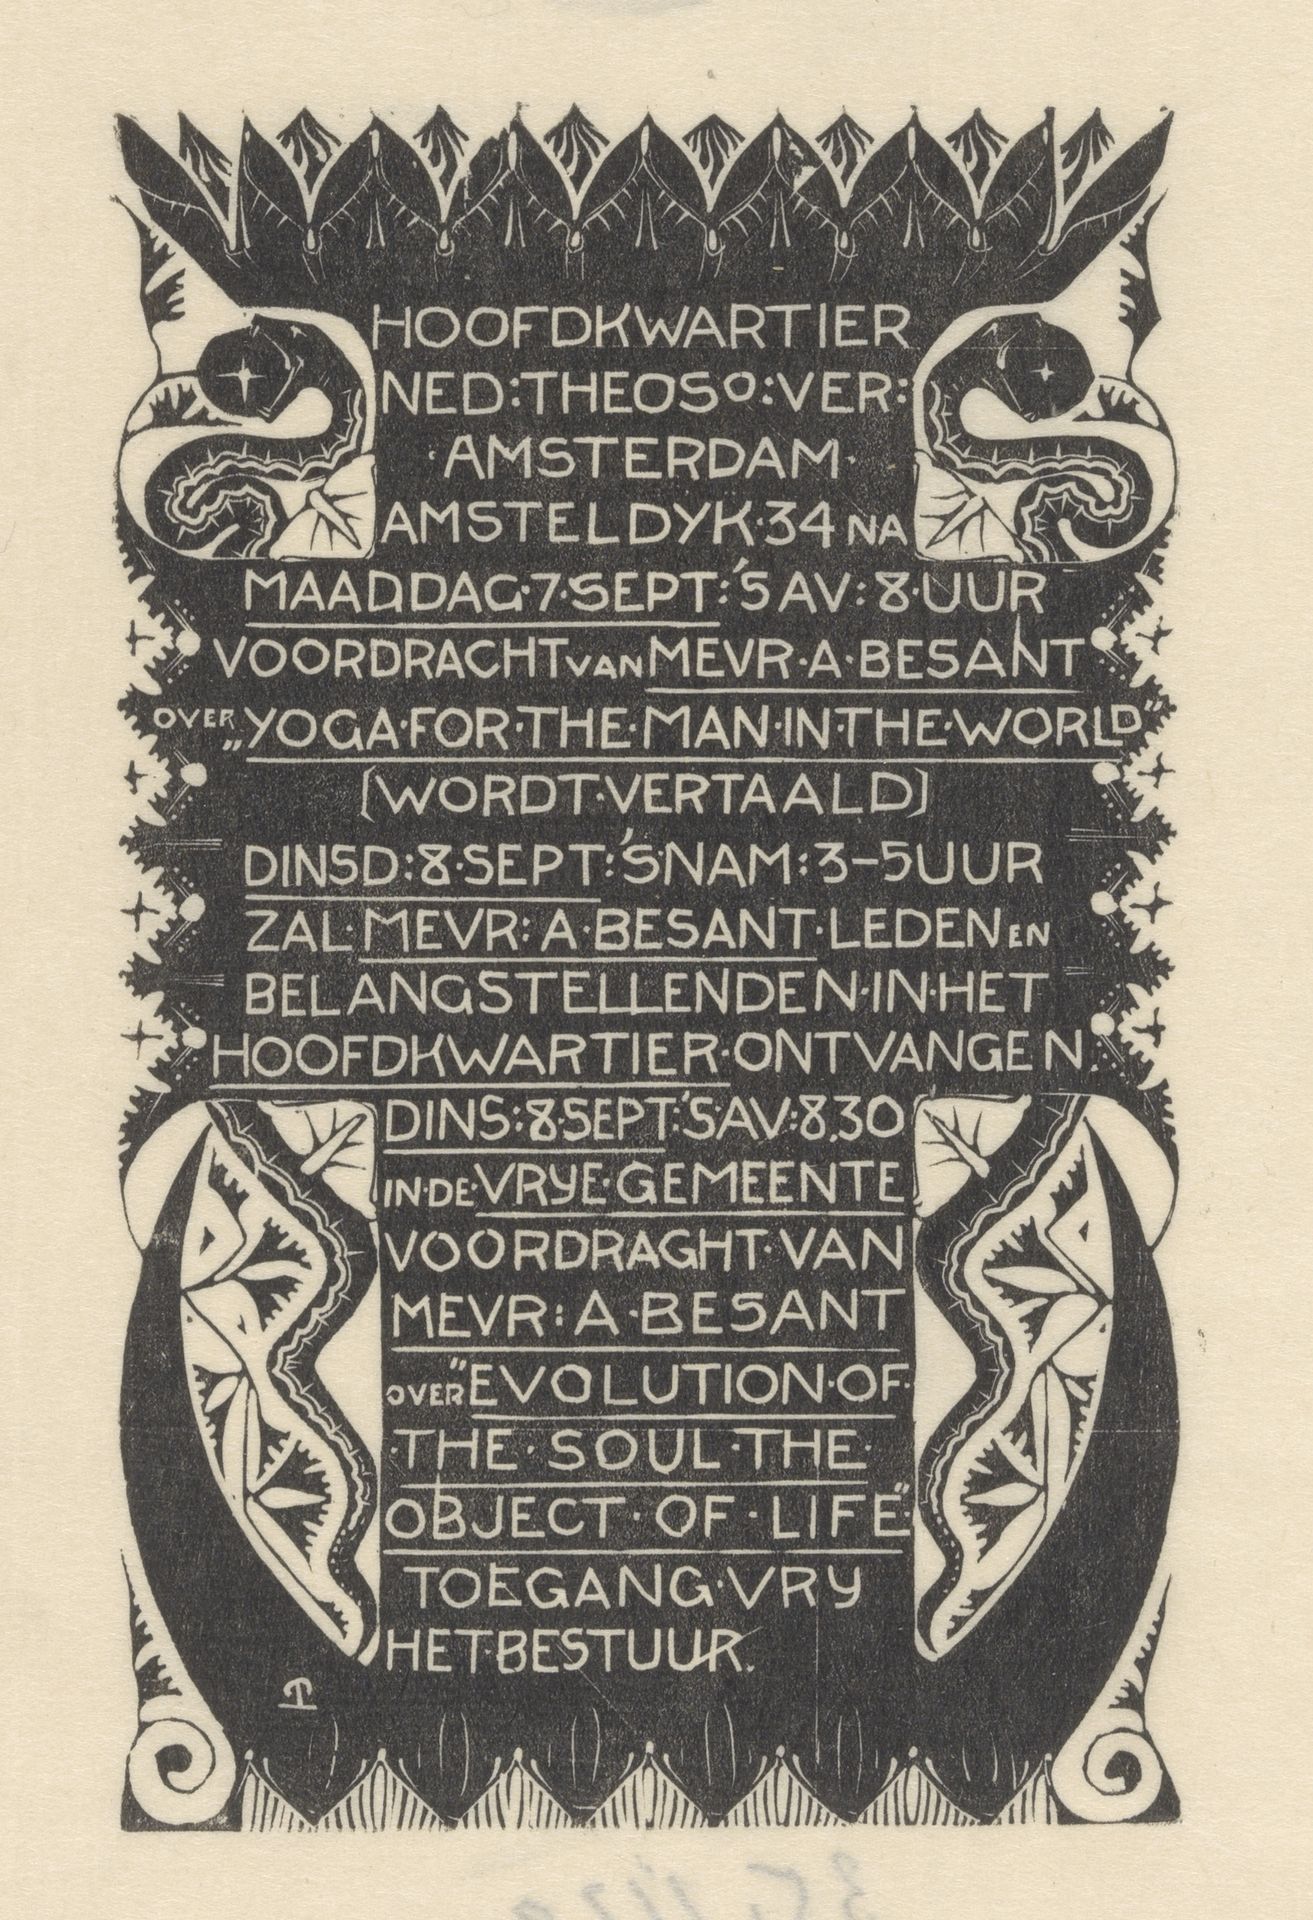 HOOFDKWARTIER
NED:THEOSO:VER:
·AMSTERDAM·
AMSTELDYK·34 NA
MAADDAG·7·SEPT:'S AV:8·UUR
VOORDRACHT VAN MEVR·A·BESANT
OVER „YOGA·FOR·THE·MAN·IN·THE·WORLD"
(WORDT·VERTAALD)
DINSD:8·SEPT:'S·NAM:3-5UUR
ZAL·MEVR:A·BESANT·LEDEN EN
BELANGSTELLENDEN·IN·HET
HOOFDKWARTIER·ONTVANGEN.
DINS:8·SEPT:'S·AV:8.30
IN·DE·VRYE·GEMEENTE
VOORDRAGHT·VAN
MEVR:A·BESANT
OVER "EVOLUTION·OF·
·THE·SOUL·THE·
OBJECT·OF·LIFE"
TOEGANG·VRY
HET·BESTUUR.